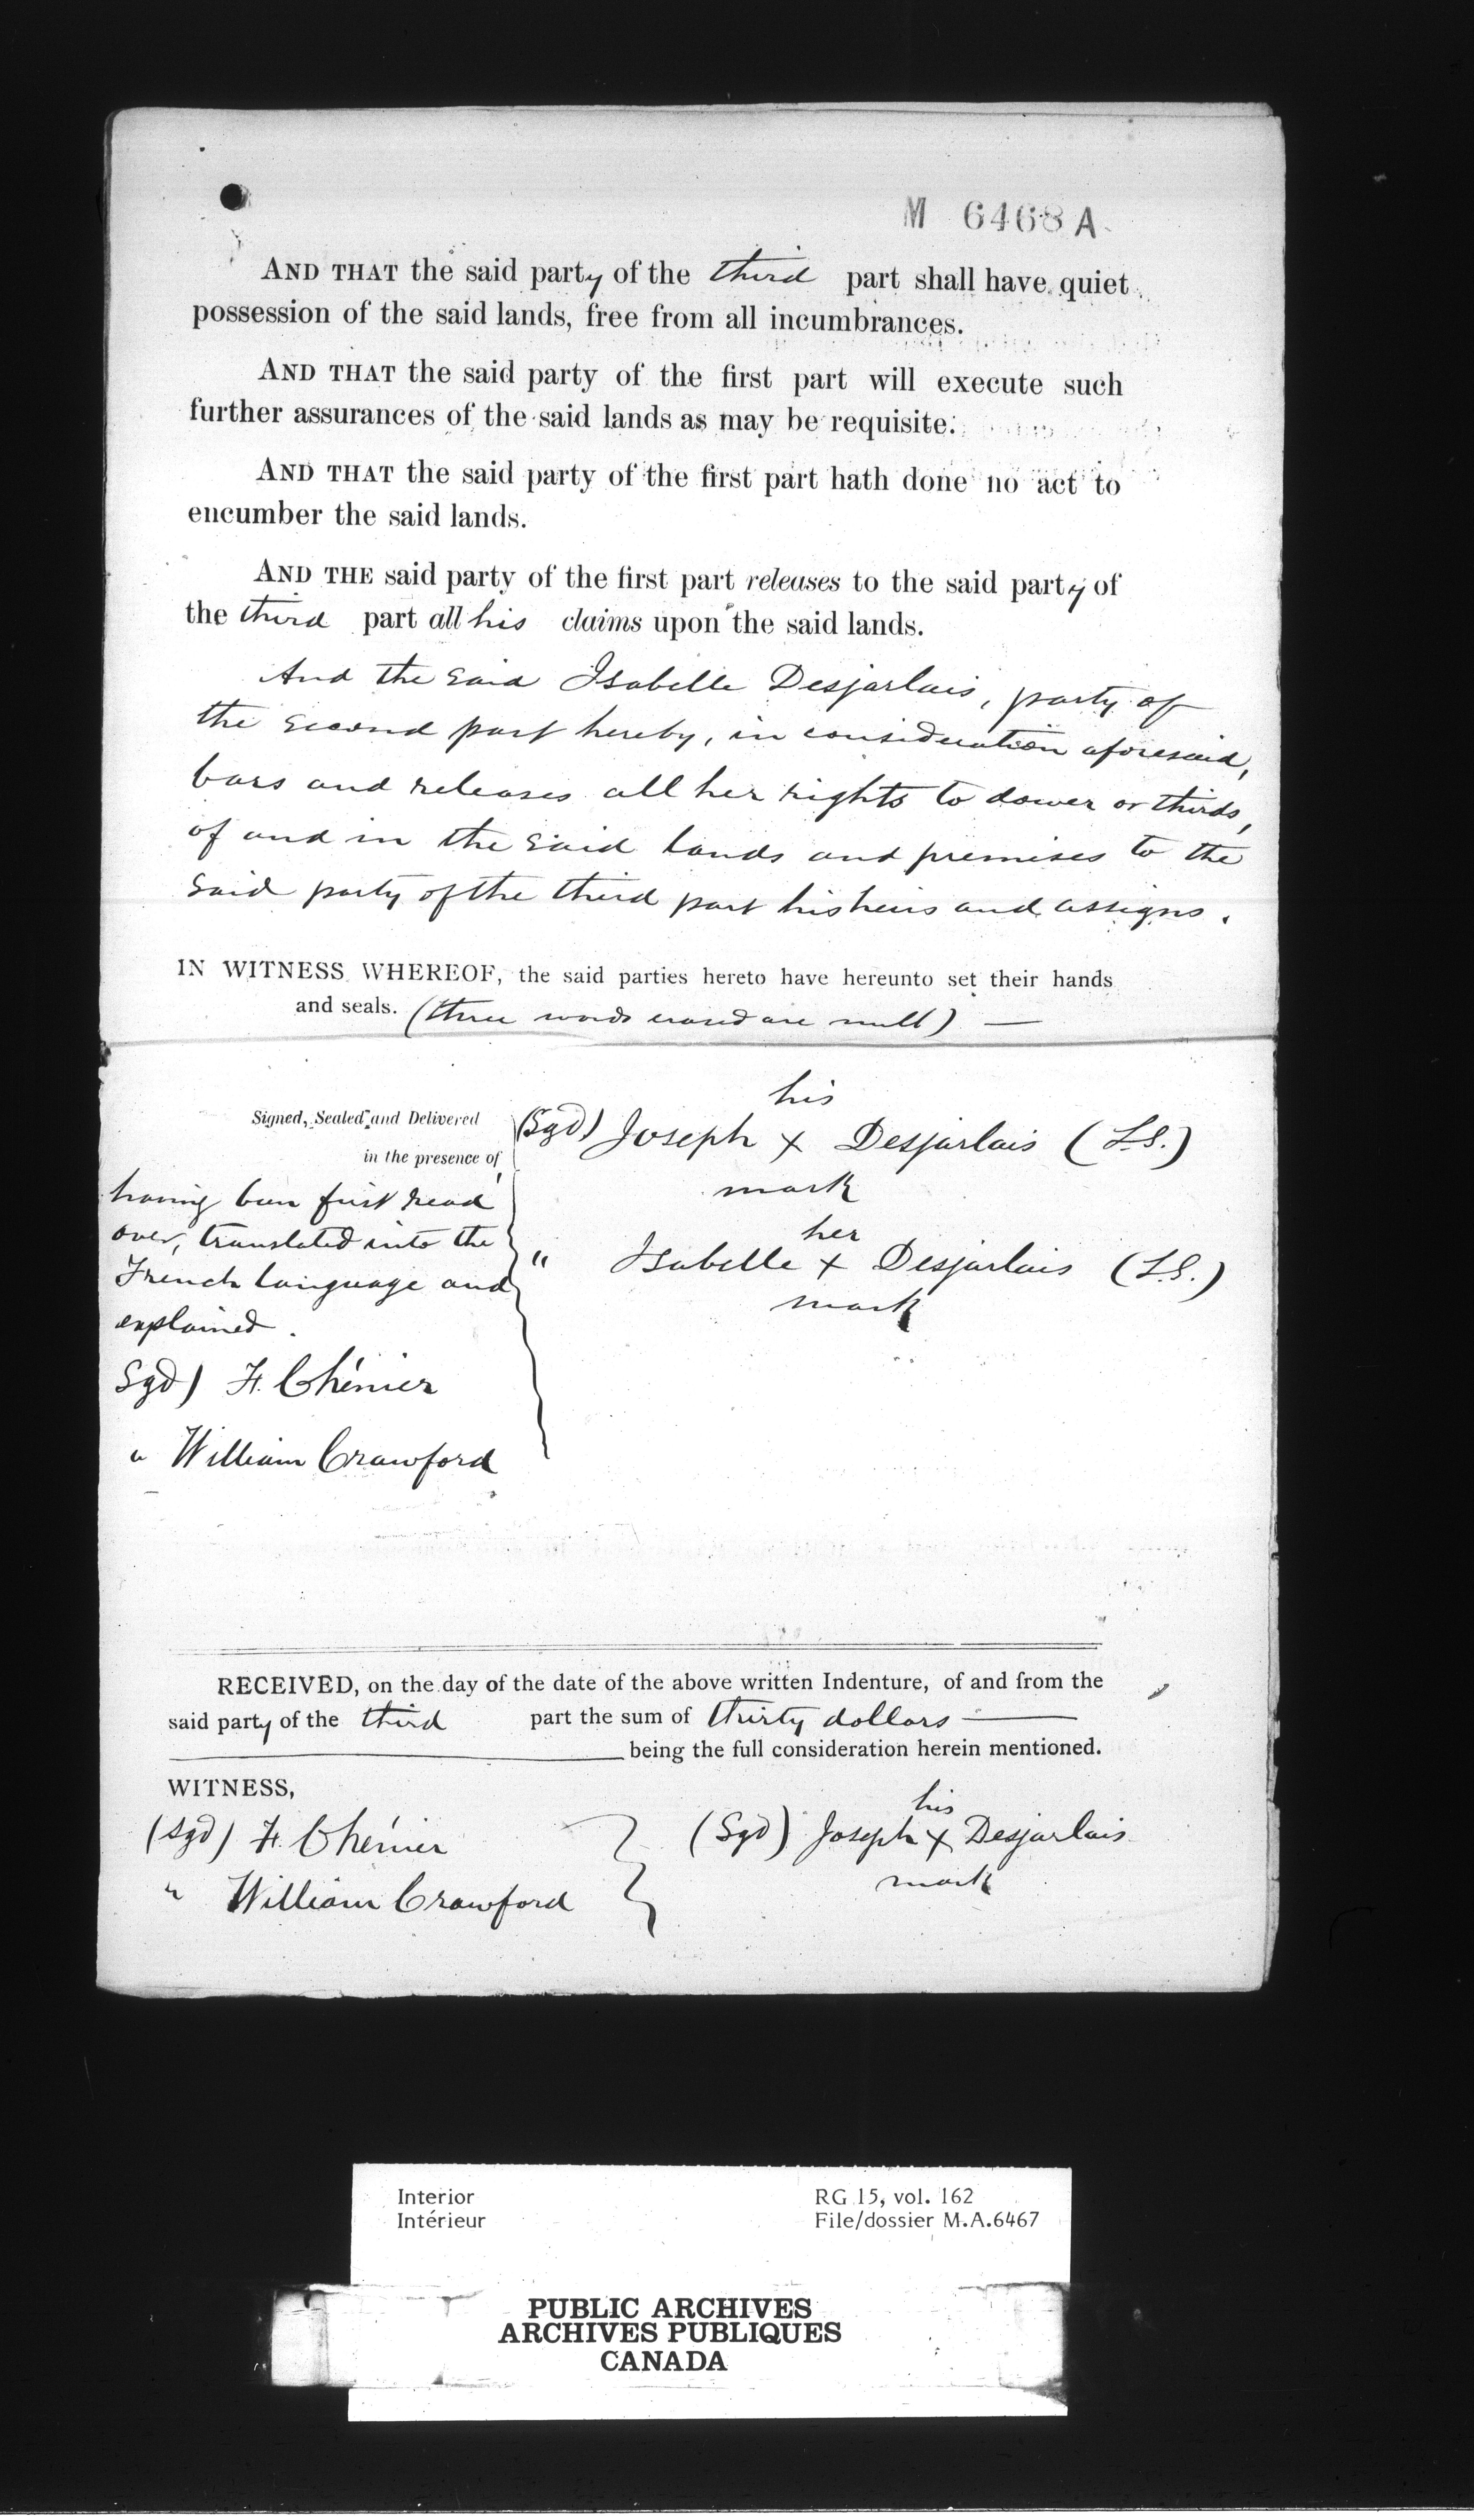 M 6468 A
AND THAT the said party of the third part shall have quiet
possession of the said lands, free from all incumbrances.
AND THAT the said party of the first part will execute such
further assurances of the said lands as may be requisite.
AND THAT the said party of the first part hath done no act to
encumber the said lands.
AND THE said party of the first part releases to the said party of
the third part all his claims upon the said lands.
And the said Isabelle Desjarlais, party of
the second part hereby, in consideration aforesaid,
bars and releases all her rights to dower or thirds,
of and in the said lands and premises to the
said party of the third part his heirs and assigns.
IN WITNESS WHEREOF, the said parties hereto have hereunto set their hands
and seals. (three words erased are null) —
his
Signed, Sealed and Delivered (Sgd) Joseph x Desjarlais (L.S.)
in the presence of
mark
having been first read
her
over, translated into the
" Isabelle x Desjarlais (L.S.)
French language and
mark
explained.
Sgd) H. Chénier
" William Crawford
RECEIVED, on the day of the date of the above written Indenture, of and from the
said party of the third part the sum of thirty dollars —
being the full consideration herein mentioned.
WITNESS,
his
(Sgd) H. Chénier (Sgd) Joseph x Desjarlais
mark
" William Crawford
Interior RG 15, vol. 162
Intérieur File/dossier M.A.6467
PUBLIC ARCHIVES
ARCHIVES PUBLIQUES
CANADA